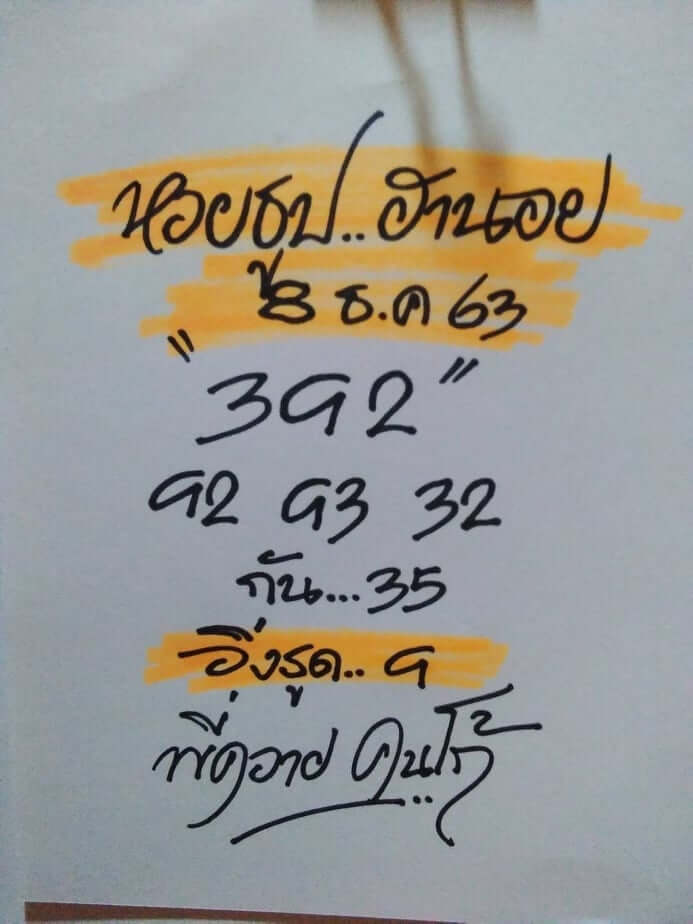 หวยซุป..ฮานอย
8 ธ.ค 63
"392"
92 93 32
กัน...35
วิ่งรูด.. 9
พี่ควาย คนโก้